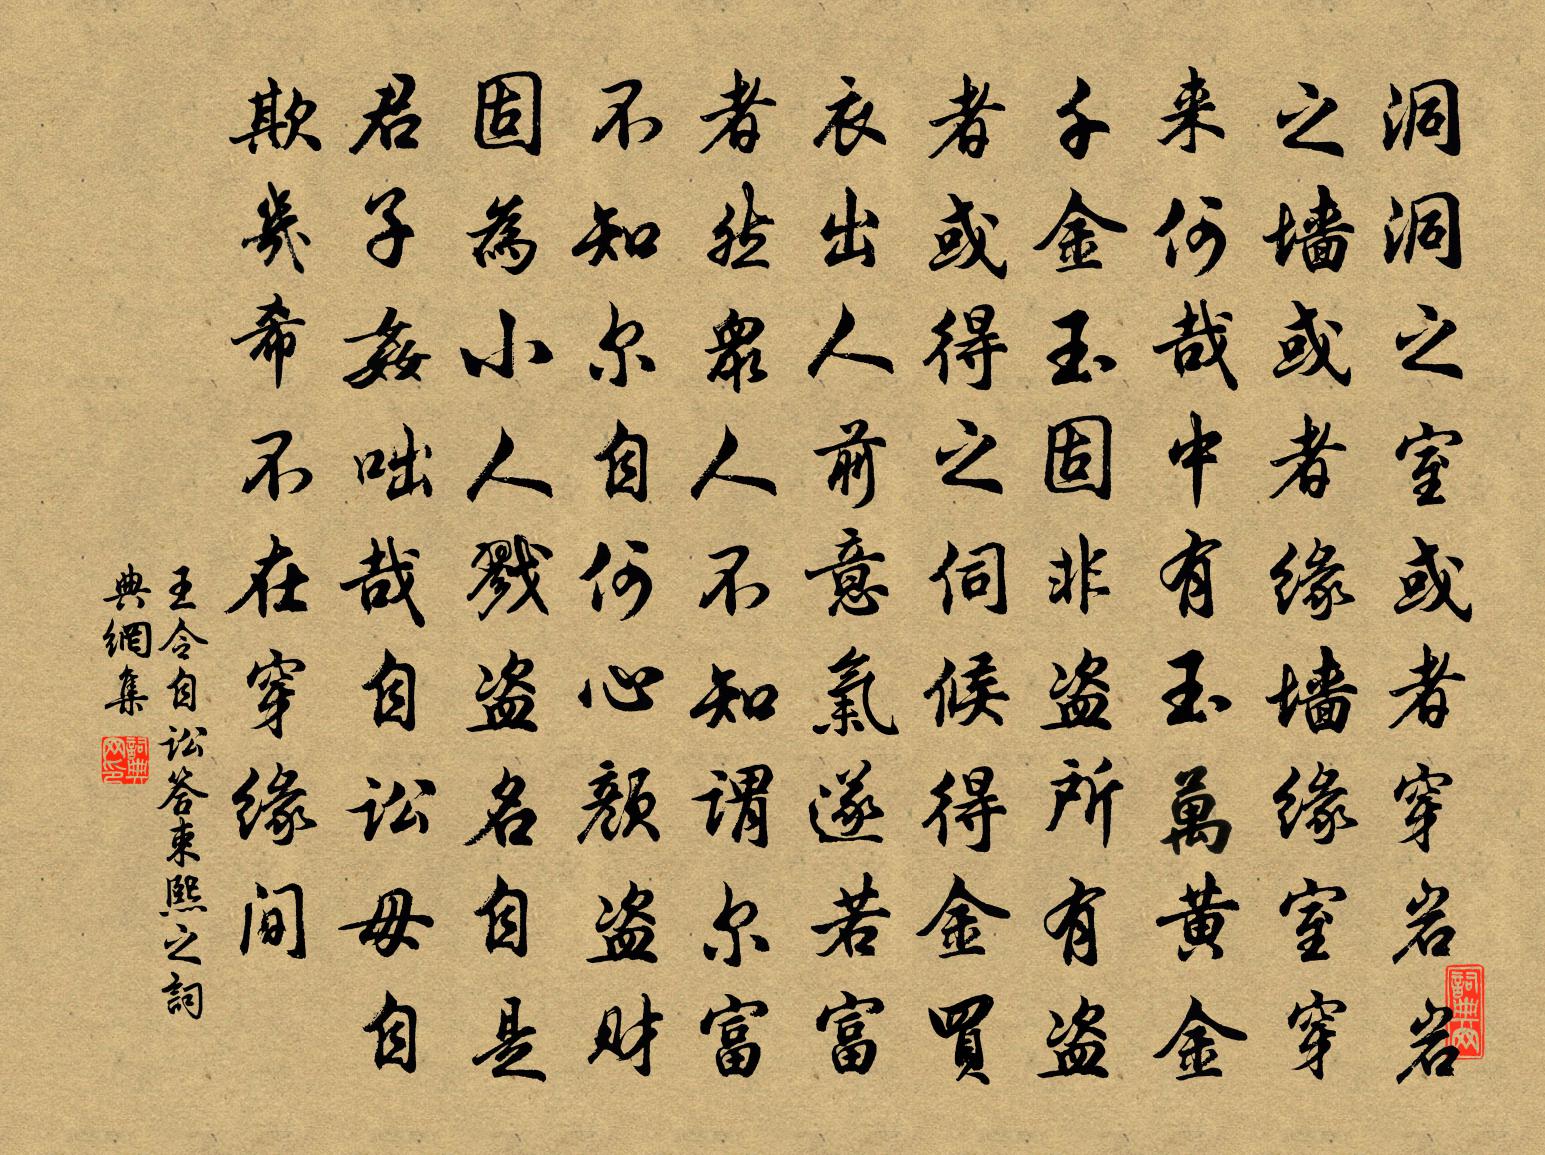 洞洞之室或者穿岩岩
之墙或者缘墙缘室穿
来何哉中有玉萬黄金
千金玉固非盗所有盗
者或得之伺候得金買
衣出人前意氣遂若富
者然衆人不知謂尔富
不知尔自何心顔盗财
固為小人戮盗名自是
君子姦咄哉自訟毋自
欺幾希不在穿缘间
王令自訟答束熙之詞
典網集
詞典网
詞典网印